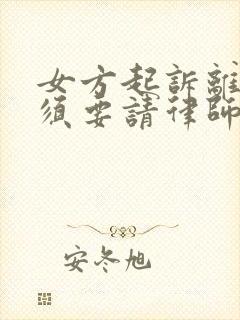 女方起訴離
須要請律師
安冬旭